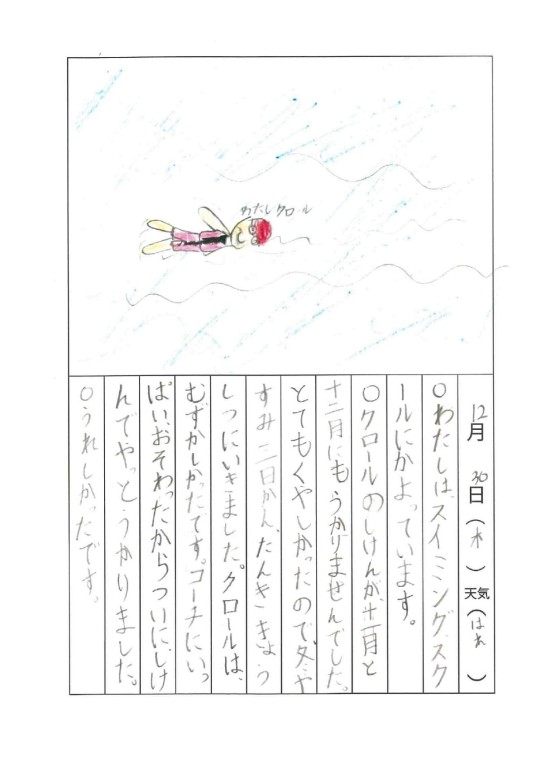 わたし クロール
12月 30日（水）天気（はれ）
○わたしは、スイミングスク
ールにかよっています。
○クロールのしけんが、十一月と
十二月にもうかりませんでした。
とてもくやしかったので、冬や
すみ二日かん、たんきこきょう
しつにいきました。クロールは、
むずかしかったです。コーチにいっ
ぱい、おそわったからついに、しけ
んでやっとうかりました。
○うれしかったです。